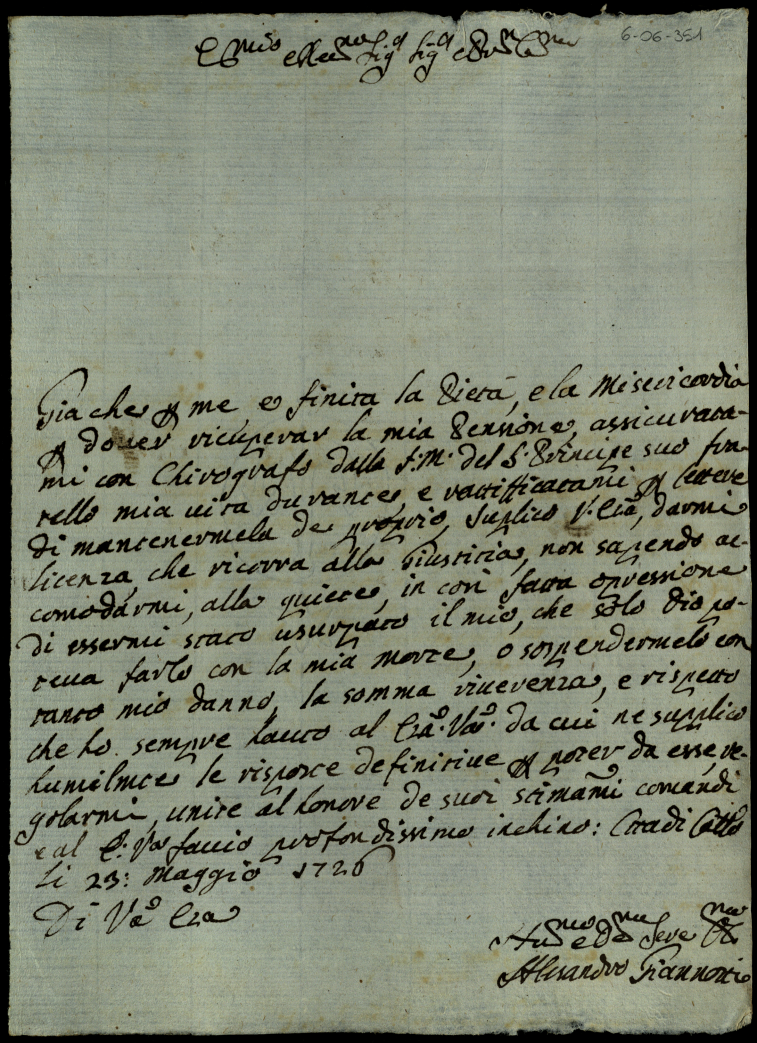 6-06-351
Ecc.mo Sig.r Sig.r
Gia che p me e finita la Pietà, e la Misericordia
p dover ricuperar la mia Pensione, assicurata-
mi con Chirografo dalla f: M: del S: Principe suo fra-
tello mia vita durante, e rattifficatami p lettere
di mantenermela de proprio, suplico V: Ecza, darmi
licenza, che ricorra alla Giustitia, non sapendo ac-
comodarmi, alla quiete, in cosi fatta opressione
di essermi stato usurpato il mio, che solo Dio po-
teva farlo con la mia morte, o sospendermelo con
tanto mio danno, la somma riverenza, e rispetto
che ho sempre hauto al Eza: Vra: da cui ne supplico
humilmte le risposte definitive p poter da esse, re-
golarmi, unite al honore de suoi stimami comandi
e al E: Vra faccio profondissimo inchino: Citta di Cas
Li 23: Maggio 1726
Di Vra Eza
Hu.mo e De.mo Serre
Alesandro Giannotti